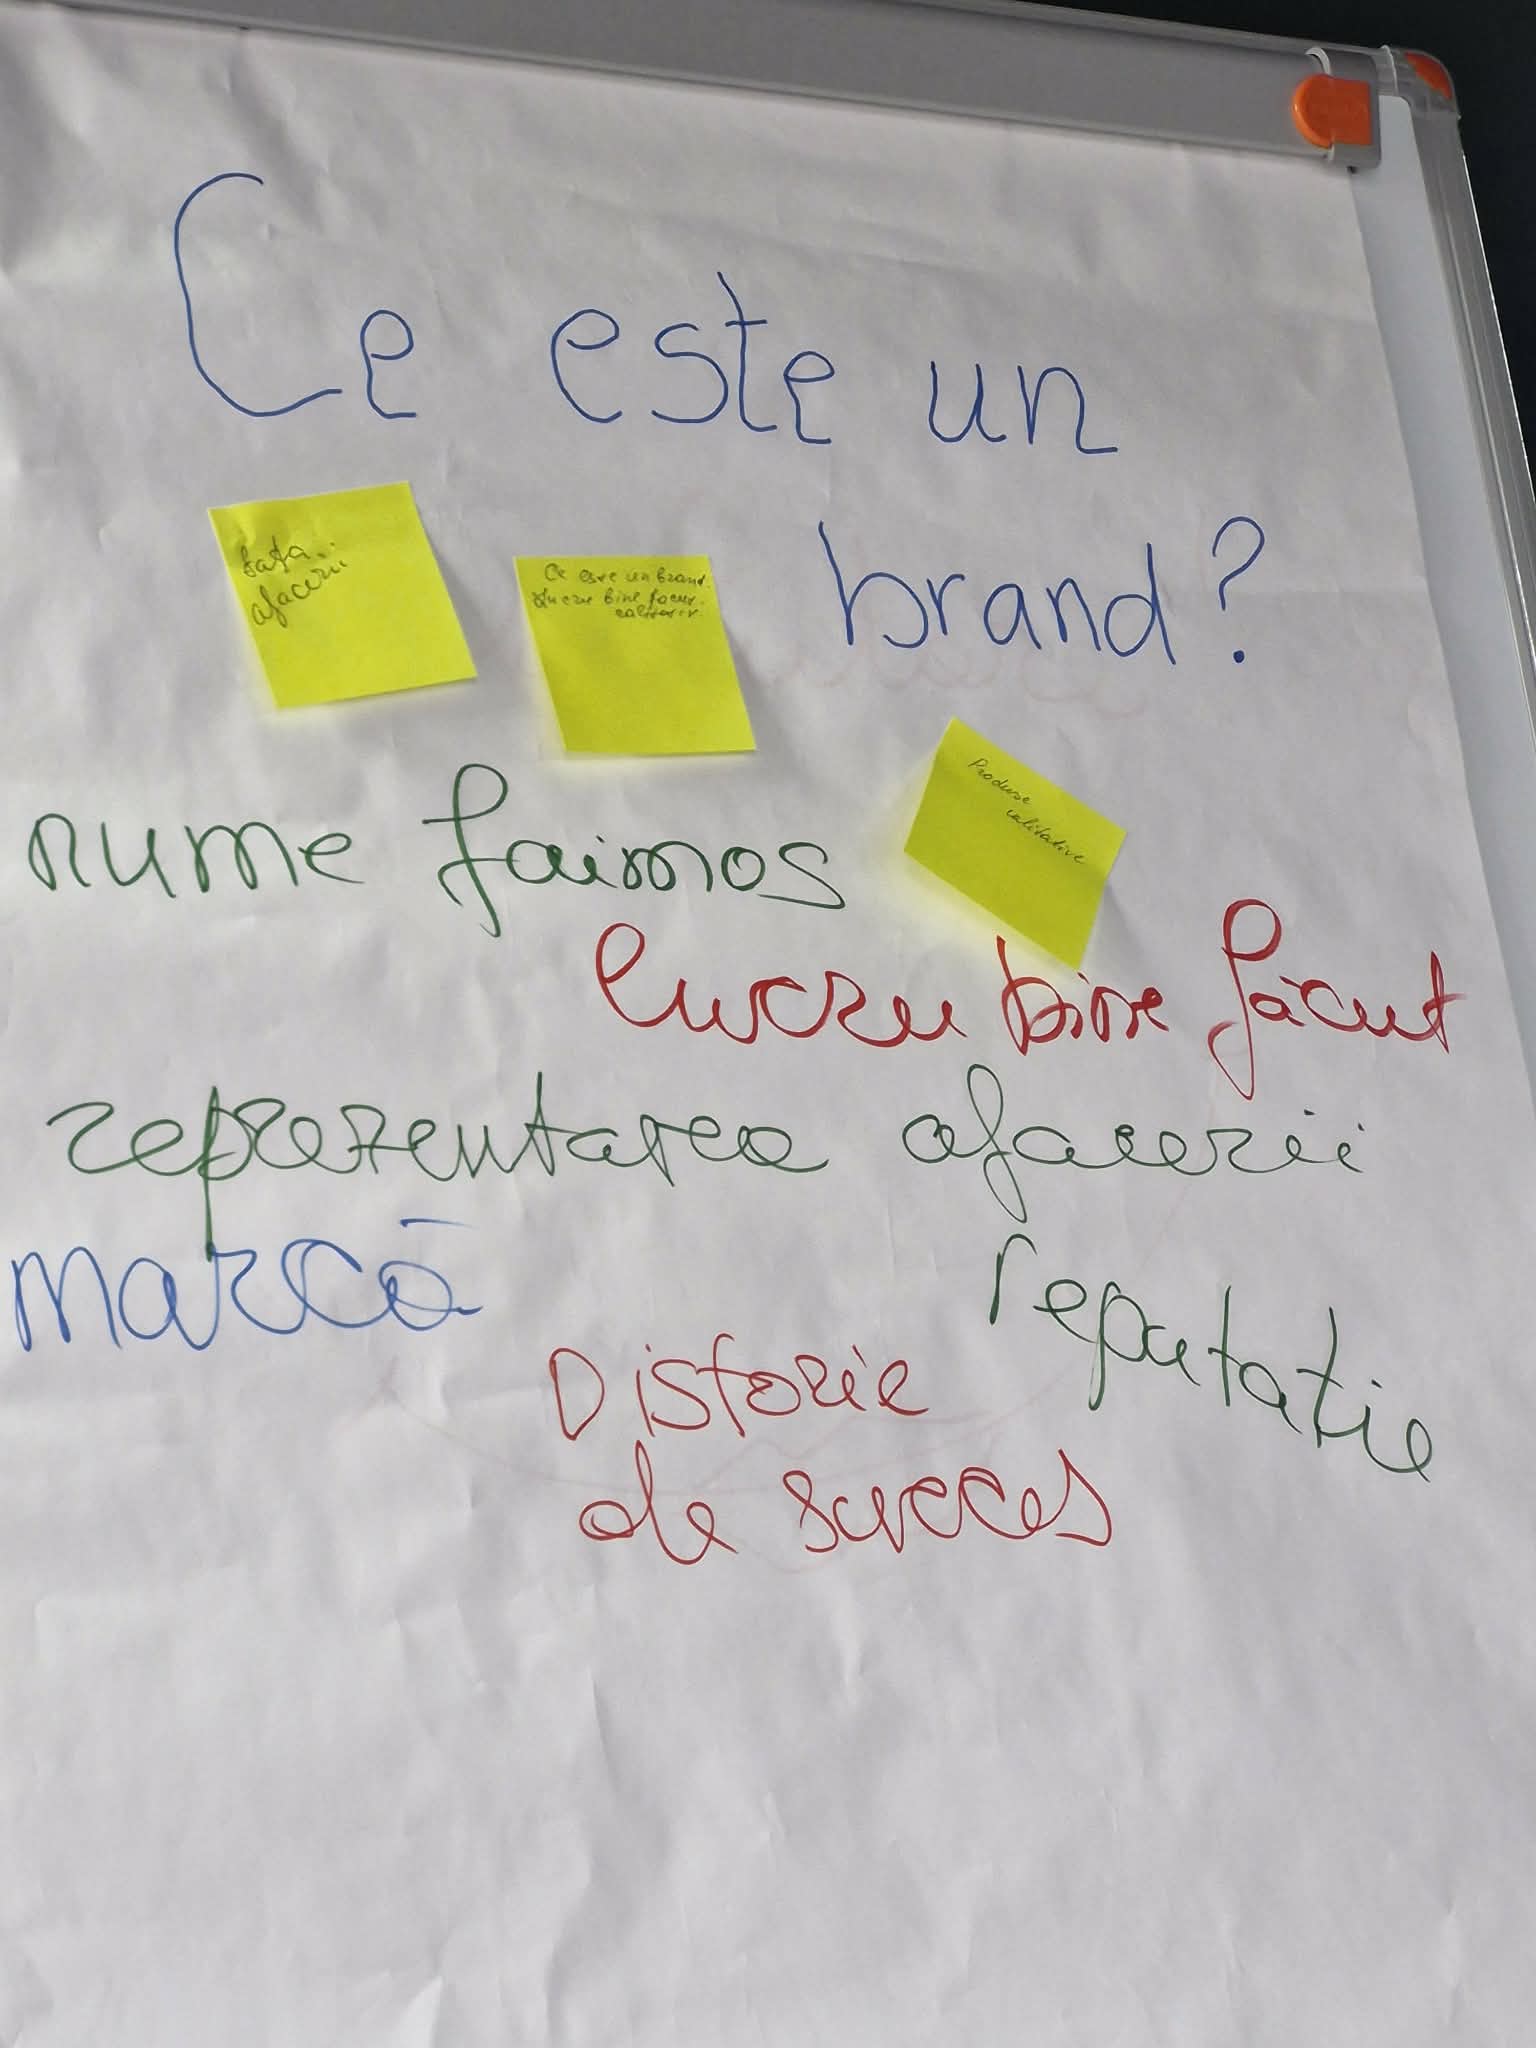 Ce este un
brand?
fața
afacerii
Ce este un brand.
Lucru bine facut.
calitativ.
Produse
calitative
nume faimos
lucru bine făcut
reprezentarea afacerii
marcă
reputație
O istorie
de succes